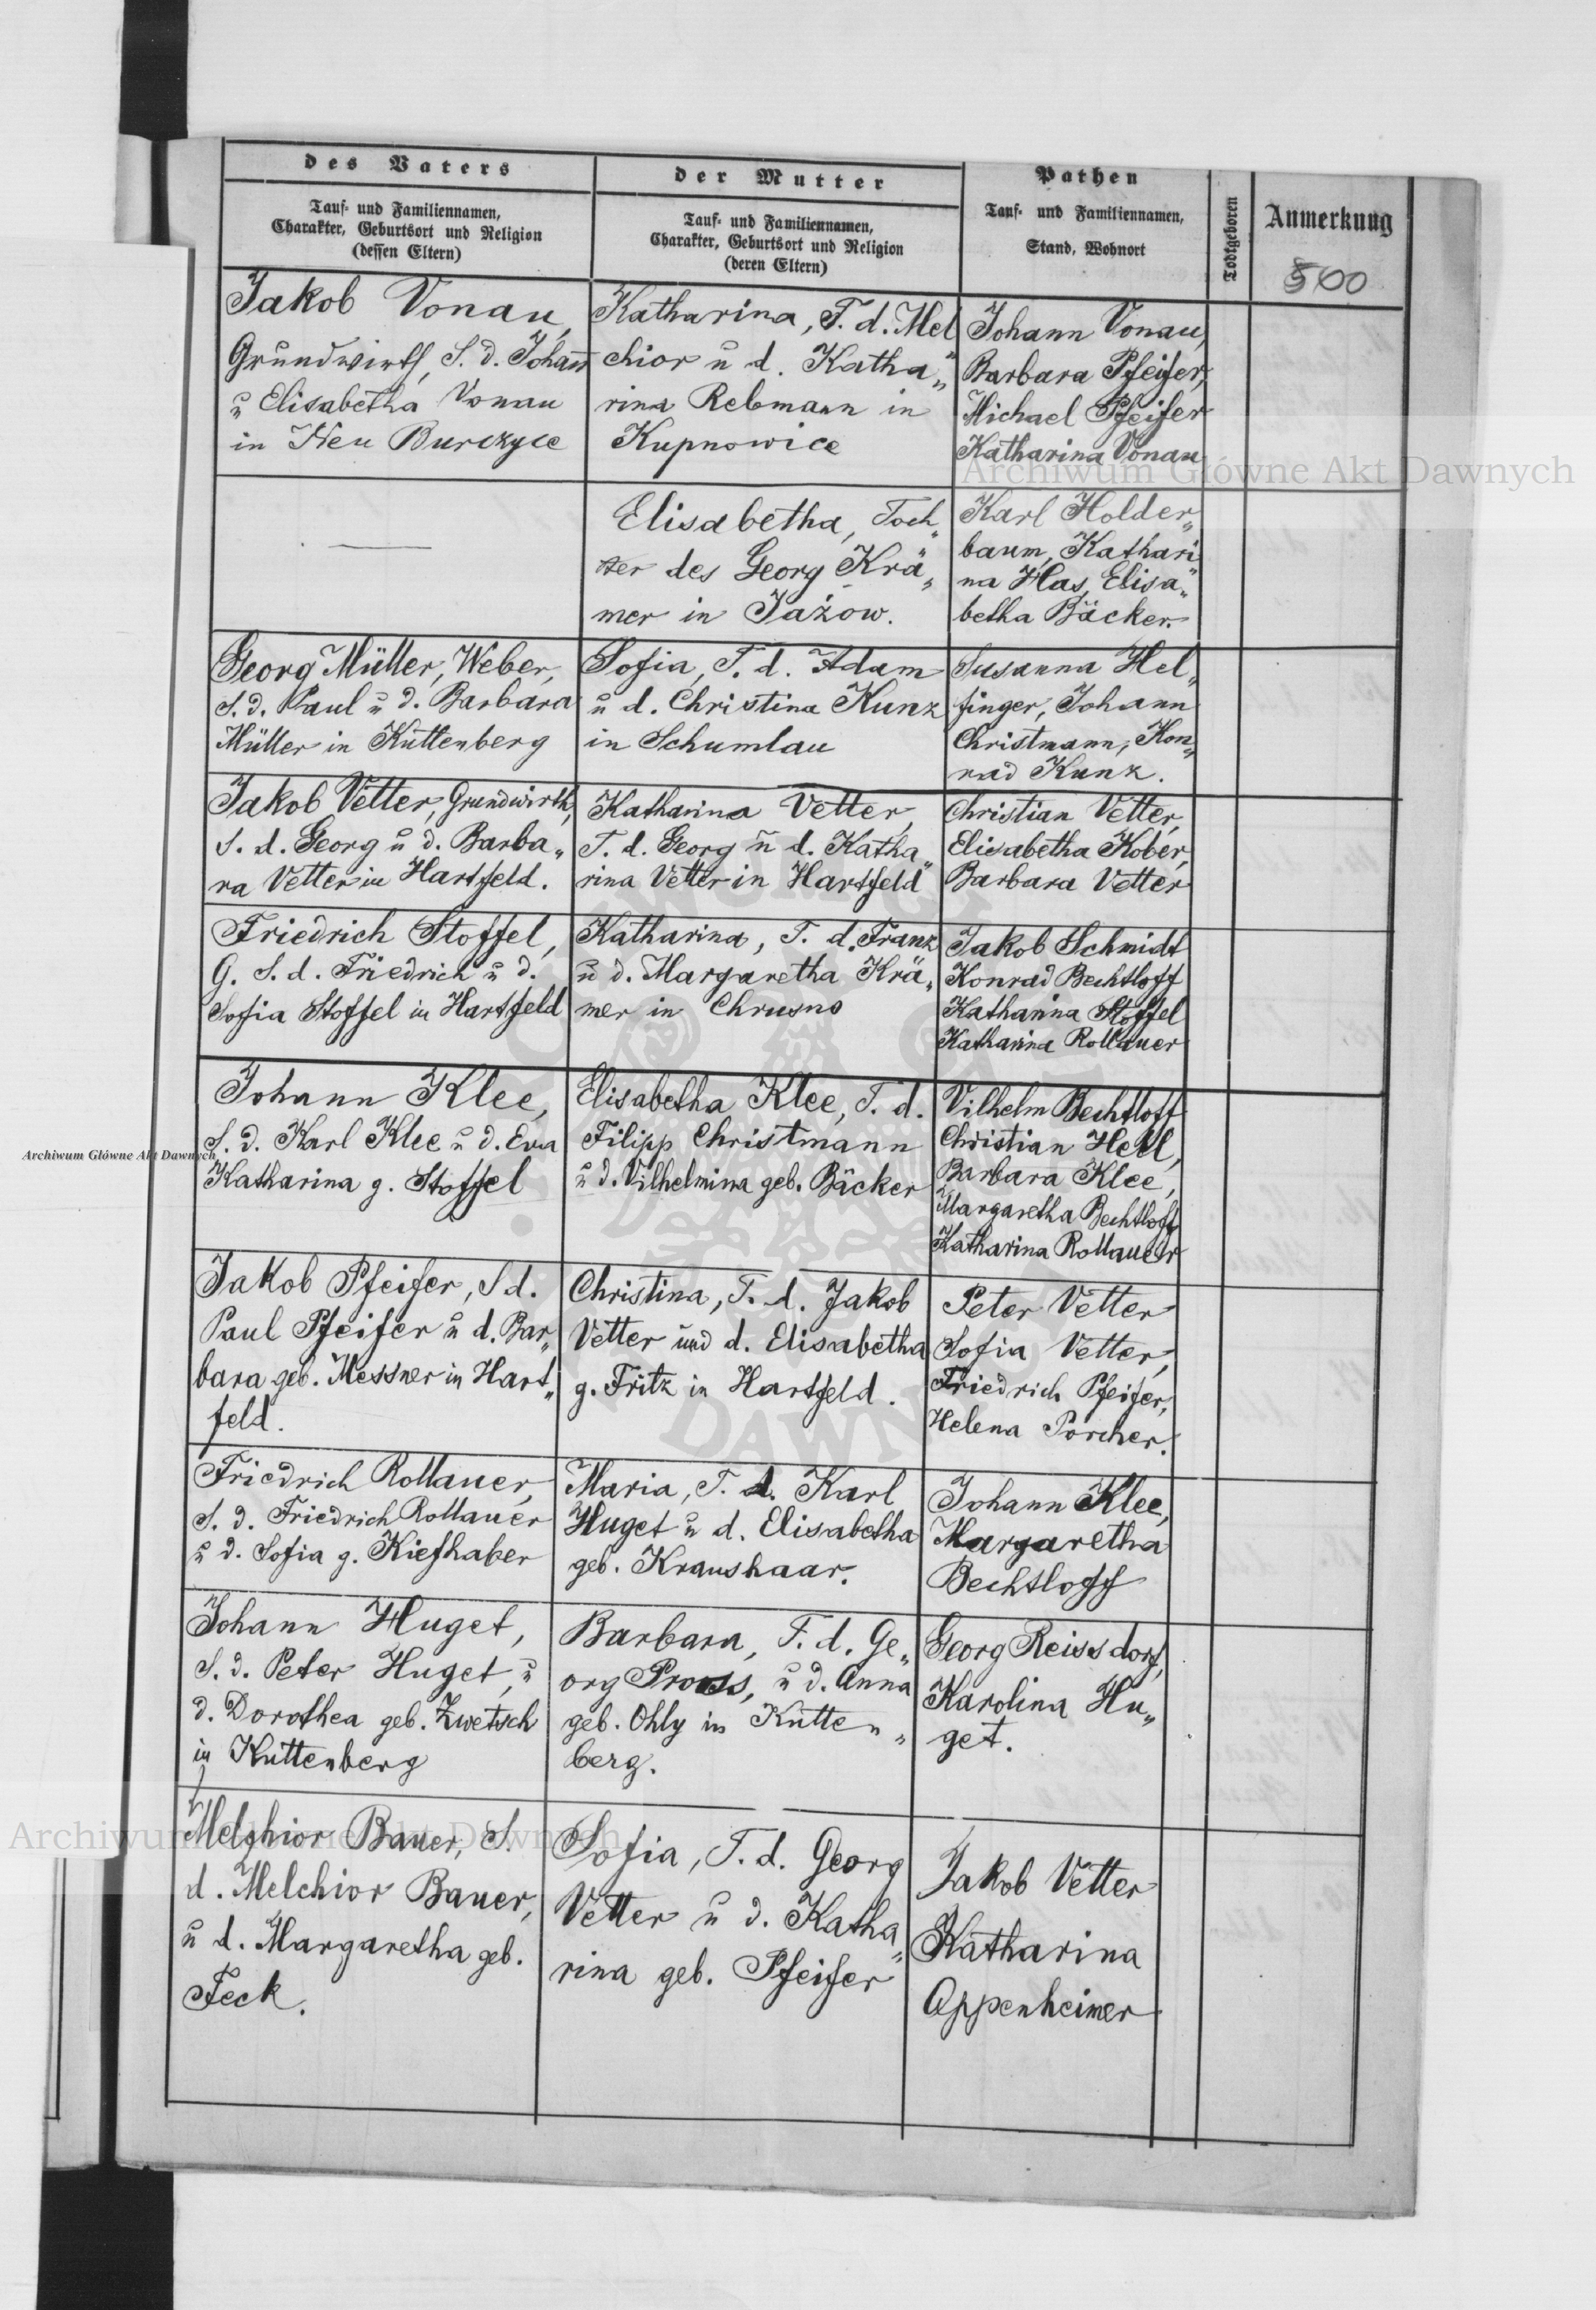 des Vaters
Tauf- und Familiennamen,
Charakter, Geburtsort und Religion
(dessen Eltern)
der Mutter
Tauf- und Familiennamen,
Charakter, Geburtsort und Religion
(deren Eltern)
Pathen
Tauf- und Familiennamen,
Stand, Wohnort
Todtgeboren
Anmerkung
500
Jakob Vonau,
Grundwirth, S. d. Johann
u Elisabetha Vonau
in Neu Burczyce
Katharina, T. d. Mel
chior u d. Katha„
rina Rebmann in
Kupnowice
Johann Vonau,
Barbara Pfeifer,
Michael Pfeifer
Katharina Vonau
Archiwum Główne Akt Dawnych
Elisabetha, Toch„
ter des Georg Krä„
mer in Jażow.
Karl Holder„
baum, Kathari„
na Has, Elisa„
betha Bäcker.
Georg Müller, Weber,
S. d. Paul u d. Barbara
Müller in Kuttenberg
Sofia, T. d. Adam
u d. Christina Kunz
in Schumlau
Susanna Hel„
finger, Johann
Christmann, Kon„
rad Kunz.
Jakob Vetter, Grundwirth,
S. d. Georg u d. Barba„
ra Vetter in Hartfeld.
Katharina Vetter,
T. d. Georg u d. Katha„
rina Vetter in Hartfeld
Christian Vetter,
Elisabetha Kober,
Barbara Vetter
Friedrich Stoffel,
G. S. d. Friedrich u d.
Sofia Stoffel in Hartfeld
Katharina, T. d. Franz
u d. Margaretha Krä„
mer in Chrusno
Jakob Schmidt
Konrad Bechtloff
Katharina Stoffel
Katharina Rollauer
Johann Klee,
S. d. Karl Klee u d. Eva
Katharina g. Stoffel
Elisabetha Klee, T. d.
Filipp Christmann
u d. Vilhelmina geb. Bäcker
Vilhelm Bechtloff
Christian Hell,
Barbara Klee,
Margaretha Bechtloff
Katharina Rollauer
Archiwum Główne Akt Dawnych
Jakob Pfeifer, S d.
Paul Pfeifer u d. Bar„
bara geb. Messner in Hart„
feld.
Christina, T. d. Jakob
Vetter und d. Elisabetha
g. Fritz in Hartfeld.
Peter Vetter
Sofia Vetter,
Friedrich Pfeifer,
Helena Porcher.
Friedrich Rollauer,
S. d. Friedrich Rollauer
u d. Sofia g. Kiefhaber
Maria, T. d. Karl
Huget u d. Elisabetha
geb. Kraushaar.
Johann Klee,
Margaretha
Bechtloff
Johann Huget,
S. d. Peter Huget, u
d. Dorothea geb. Zwetsch
in Kuttenberg
Barbara, T. d. Ge„
org Prouss, u d. Anna
geb. Ohly in Kutten„
berg.
Georg Reissdorf,
Karolina Hu„
get.
Archiwum Główne Akt Dawnych
Melchior Bauer, S.
d. Melchior Bauer,
u d. Margaretha geb.
Feck.
Sofia, T. d. Georg
Vetter u d. Katha„
rina geb. Pfeifer
Jakob Vetter
Katharina
Oppenheimer